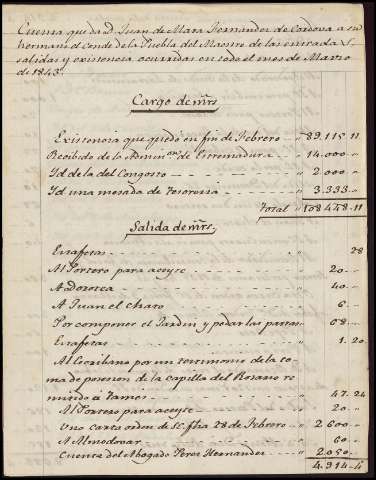 Cuenta que da D. Juan de Mata Fernandez de Cordova a su
hermano el Conde de la Puebla del Maestre de las entradas,
salidas y existencia ocurridas en todo el mes de Marzo
de 1843.
Cargo de mrs
Existencia que quedó en fin de Febrero 89.115 11
Recibido de la Admin.on de Estremadura 14.000
Yd de la del Congosto 2.000
Yd una mesada de Tesoreria 3.333
Total 108.448 11
Salida de mrs
Estafetas 28
Al Portero para aceyte 20
A Dorotea 40
A Juan el chato 6
Por componer el Jardin y podar las parras 68
Estafetas 1. 20
Al Escribano por un testimonio de la to-
ma de posesion de la capilla del Rosario re-
mitido a 47. 24
Al Portero para aceyte 20
Una carta orden de SE. fha 28 de Febrero 2.600
A Almodovar 60
Cuenta del Abogado Perez Hernandez 2.050
4.914 4